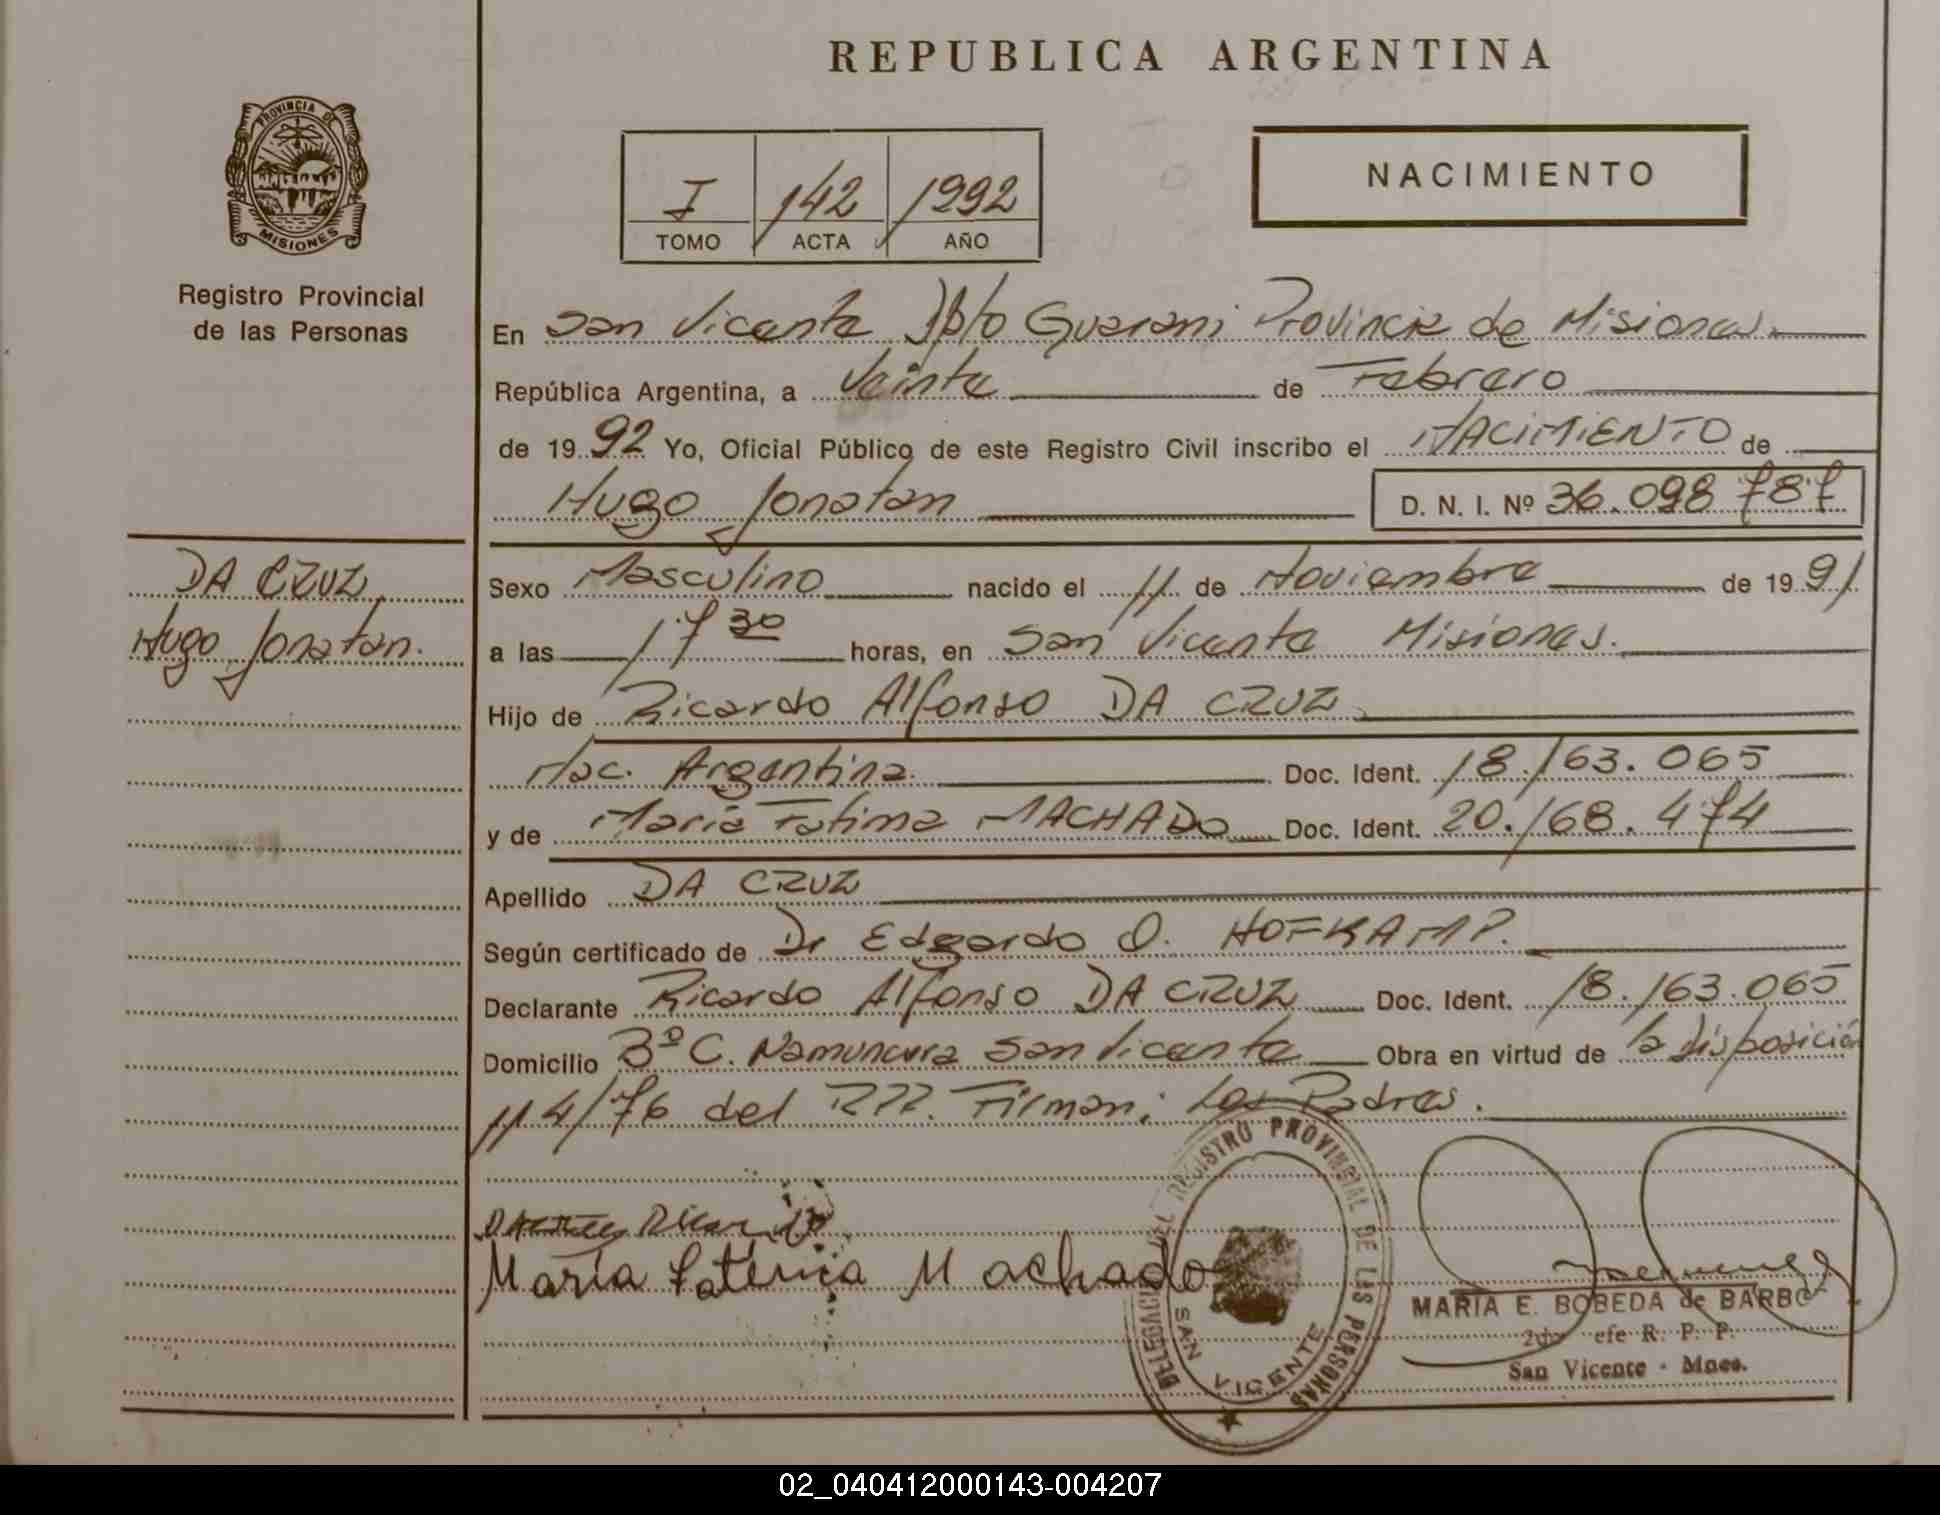 REPUBLICA ARGENTINA
PROVINCIA DE
MISIONES
Registro Provincial
de las Personas
I 142 1992
TOMO ACTA AÑO
NACIMIENTO
En San Vicente Dpto Guarani Provincia de Misiones.
República Argentina, a Veinte de Febrero
de 1992 Yo, Oficial Público de este Registro Civil inscribo el NACIMIENTO de
Hugo Jonatan D. N. I. Nº 36.098.787
DA CRUZ
Hugo Jonatan.
Sexo Masculino nacido el 11 de Noviembre de 1991
a las 17 30 horas, en San Vicente Misiones.
Hijo de Ricardo Alfonso DA CRUZ
Nac. Argentina. Doc. Ident. 18.163.065
y de Maria Fatima MACHADO Doc. Ident. 20.168.474
Apellido DA CRUZ
Según certificado de Dr Edgardo O. HOFKAMP.
Declarante Ricardo Alfonso DA CRUZ Doc. Ident. 18.163.065
Domicilio Bº C. Namuncura San Vicente Obra en virtud de la disposición
114/76 del RPP. Firman: Los Padres.
María Fatenica Machado
DELEGACION DEL REGISTRO PROVINCIAL DE LAS PERSONAS
SAN VICENTE
MARIA E. BOBEDA de BARBO
efe R. P. P.
San Vicente - Mnes.
02_040412000143-004207